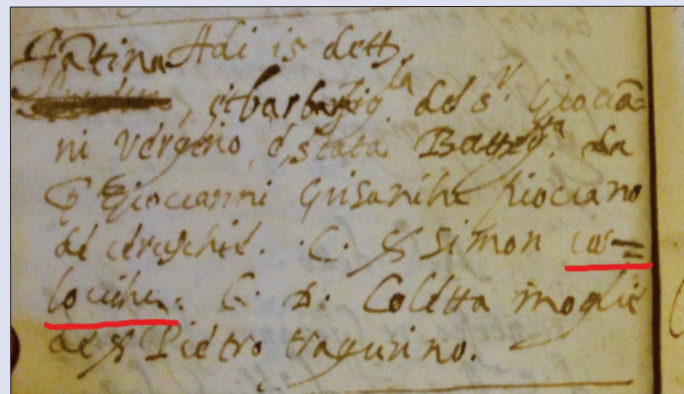 Fatina Adi 15 detto.
et barbara fig.la del s.r Giovā=
ni vergeno è stata Batteg.ta da
P Giovanni Grisaniche piovano
de cereschie. C. S Simon cos=
loviche. C. D. Coletta moglie
de S Pietro tragurino.